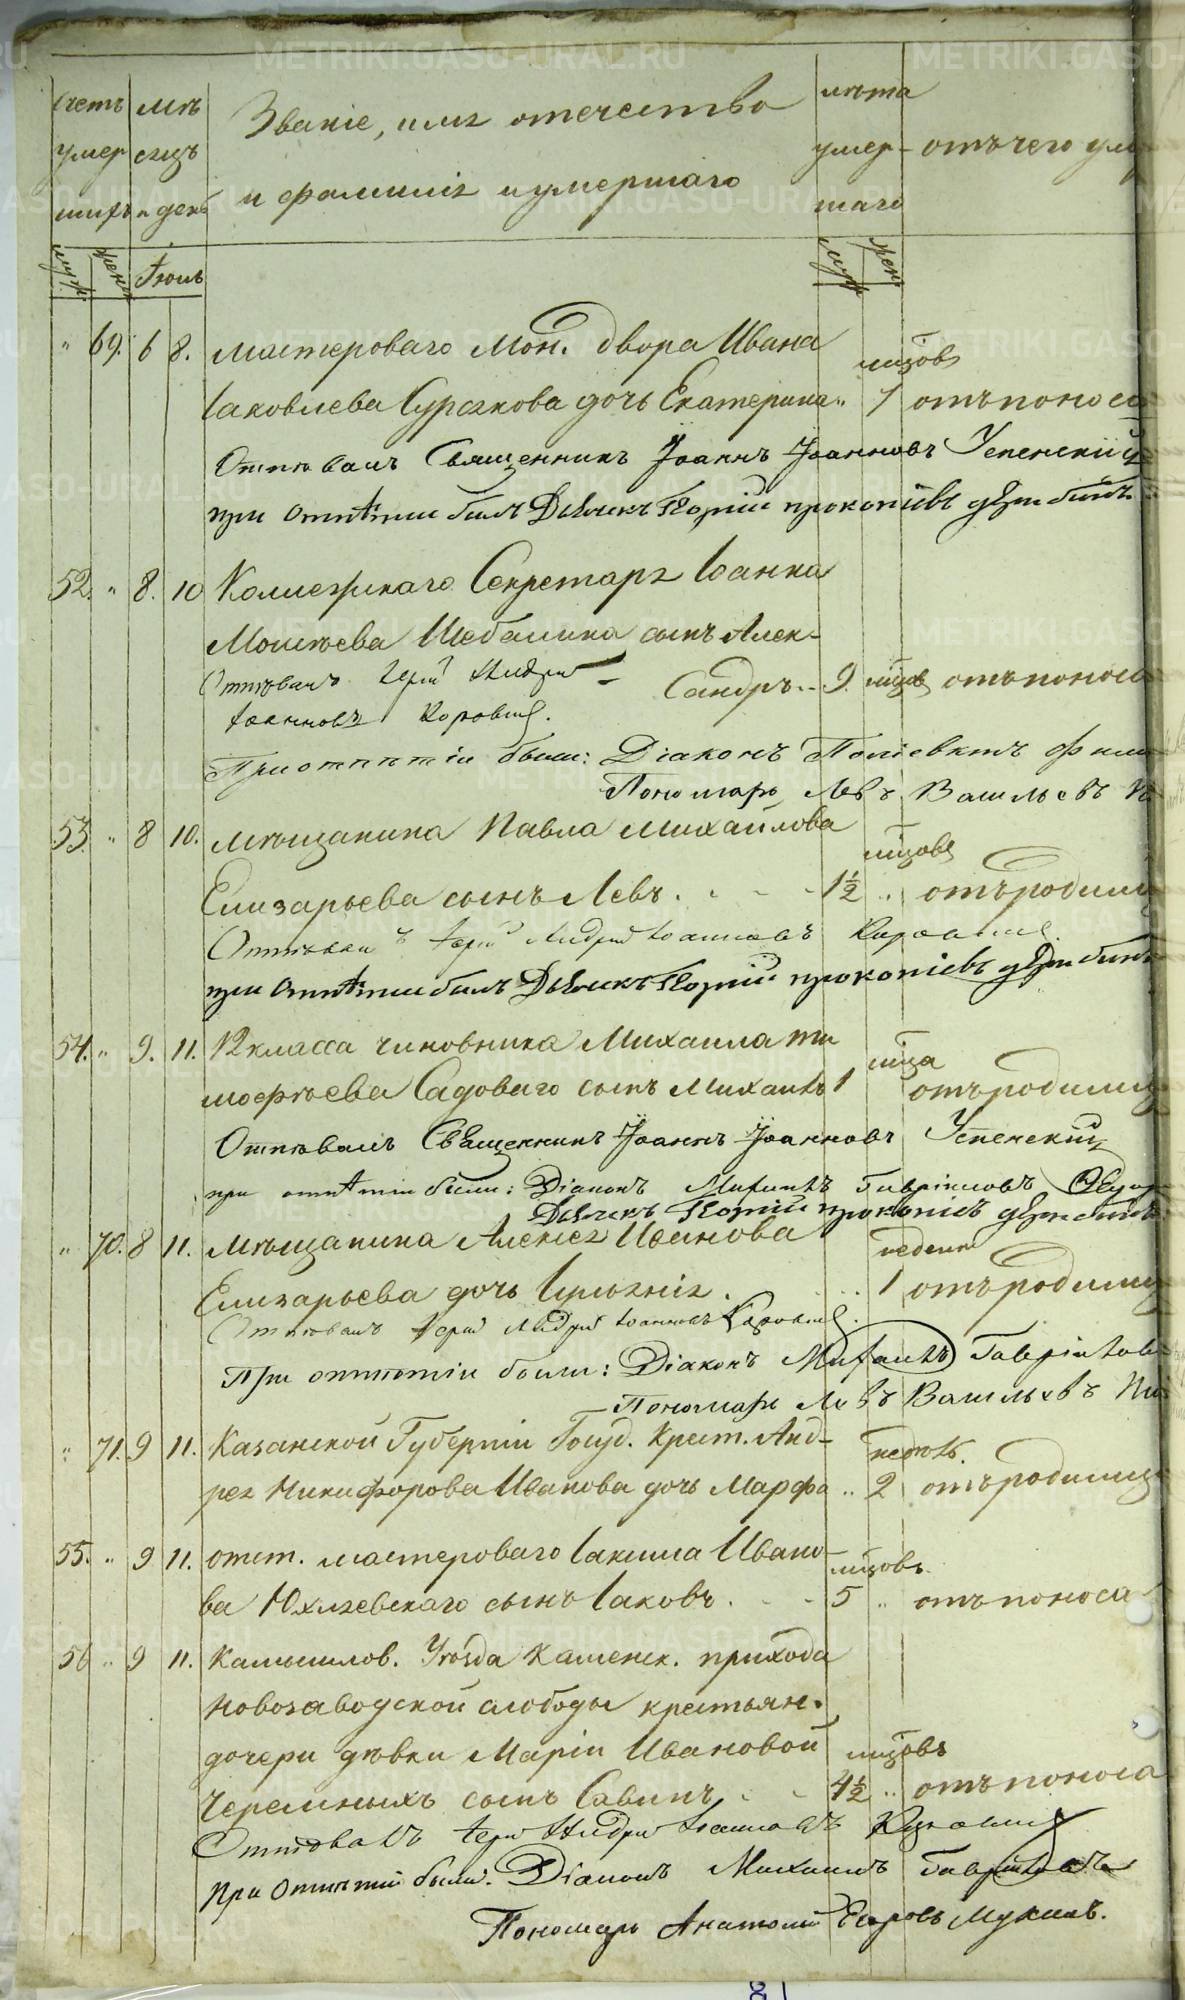 счетъ мѣ лѣта
Званіе, имя отечество
умер сяцъ умер- отъ чего ум
и фамилія умершаго
шихъ и день шаго
муж. жен. Іюль муж. жен.
" 69. 6 8. мастероваго Мон. двора Ивана
мѣцовъ
Іаковлева Сурякова дочь Екатерина " 7 отъ поноса
Отпѣвалъ Священникъ Іоаннъ Іоанновъ Успенскій
при отпѣтіи былъ Дьячекъ прокопіевъ
52. " 8. 10 Коллежскаго Секретаря Іоанна
Моисѣева Шебалина сынъ Алек-
сандръ 9. мѣцовъ отъ поноса
Отпѣвалъ Іерей Андрей
Іоанновъ
При отпѣтіи были: Діаконъ Поліевктъ
Пономарь Левъ Васильевъ
53. " 8 10. мѣщанина Павла Михайлова
мѣцовъ
Елизарьева сынъ Левъ. 1½ " отъ родимц
Отпѣвалъ Іерей Андрей Іоанновъ
при отпѣтіи былъ Дьячекъ прокопіевъ
54. " 9. 11. 12 класса чиновника Михаила Ти
мѣца
мофѣева Садоваго сынъ Михаилъ 1 отъ родимц
Отпѣвалъ Священникъ Іоаннъ Іоанновъ Успенскій
при отпѣтіи были: Діаконъ Михаилъ Гавріиловъ
Дьячекъ прокопіевъ
" 70. 8 11. Мѣщанина Алексея Иванова
недели
Елизарьева дочь 1 отъ родимц
Отпѣвалъ Іерей Андрей Іоанновъ
При отпѣтіи были: Діаконъ Михаилъ Гавріилов
Пономарь Левъ Васильевъ
" 71. 9 11. Казанской Губерніи Госуд. Крест. Анд-
недѣль.
рея Никифорова Иванова дочь Марфа " 2 отъ родимц
55. " 9 11. отст. мастероваго Іакима Ивано-
мѣцовъ.
ва сынъ Іаковъ. 5 " отъ поноса
56 " 9 11. Камышлов. Уѣзда Каменск. прихода
Новозаводской слободы крестьян.
дочери дѣвки Маріи Ивановой
мѣцовъ
Черемныхъ сынъ Савинъ 4½ " отъ поноса
Отпѣвалъ Іерей Андрей Іоанновъ
При отпѣтіи были. Діаконъ Михаилъ Гавріиловъ
Пономарь Анатолій Егоровъ Мукинъ.